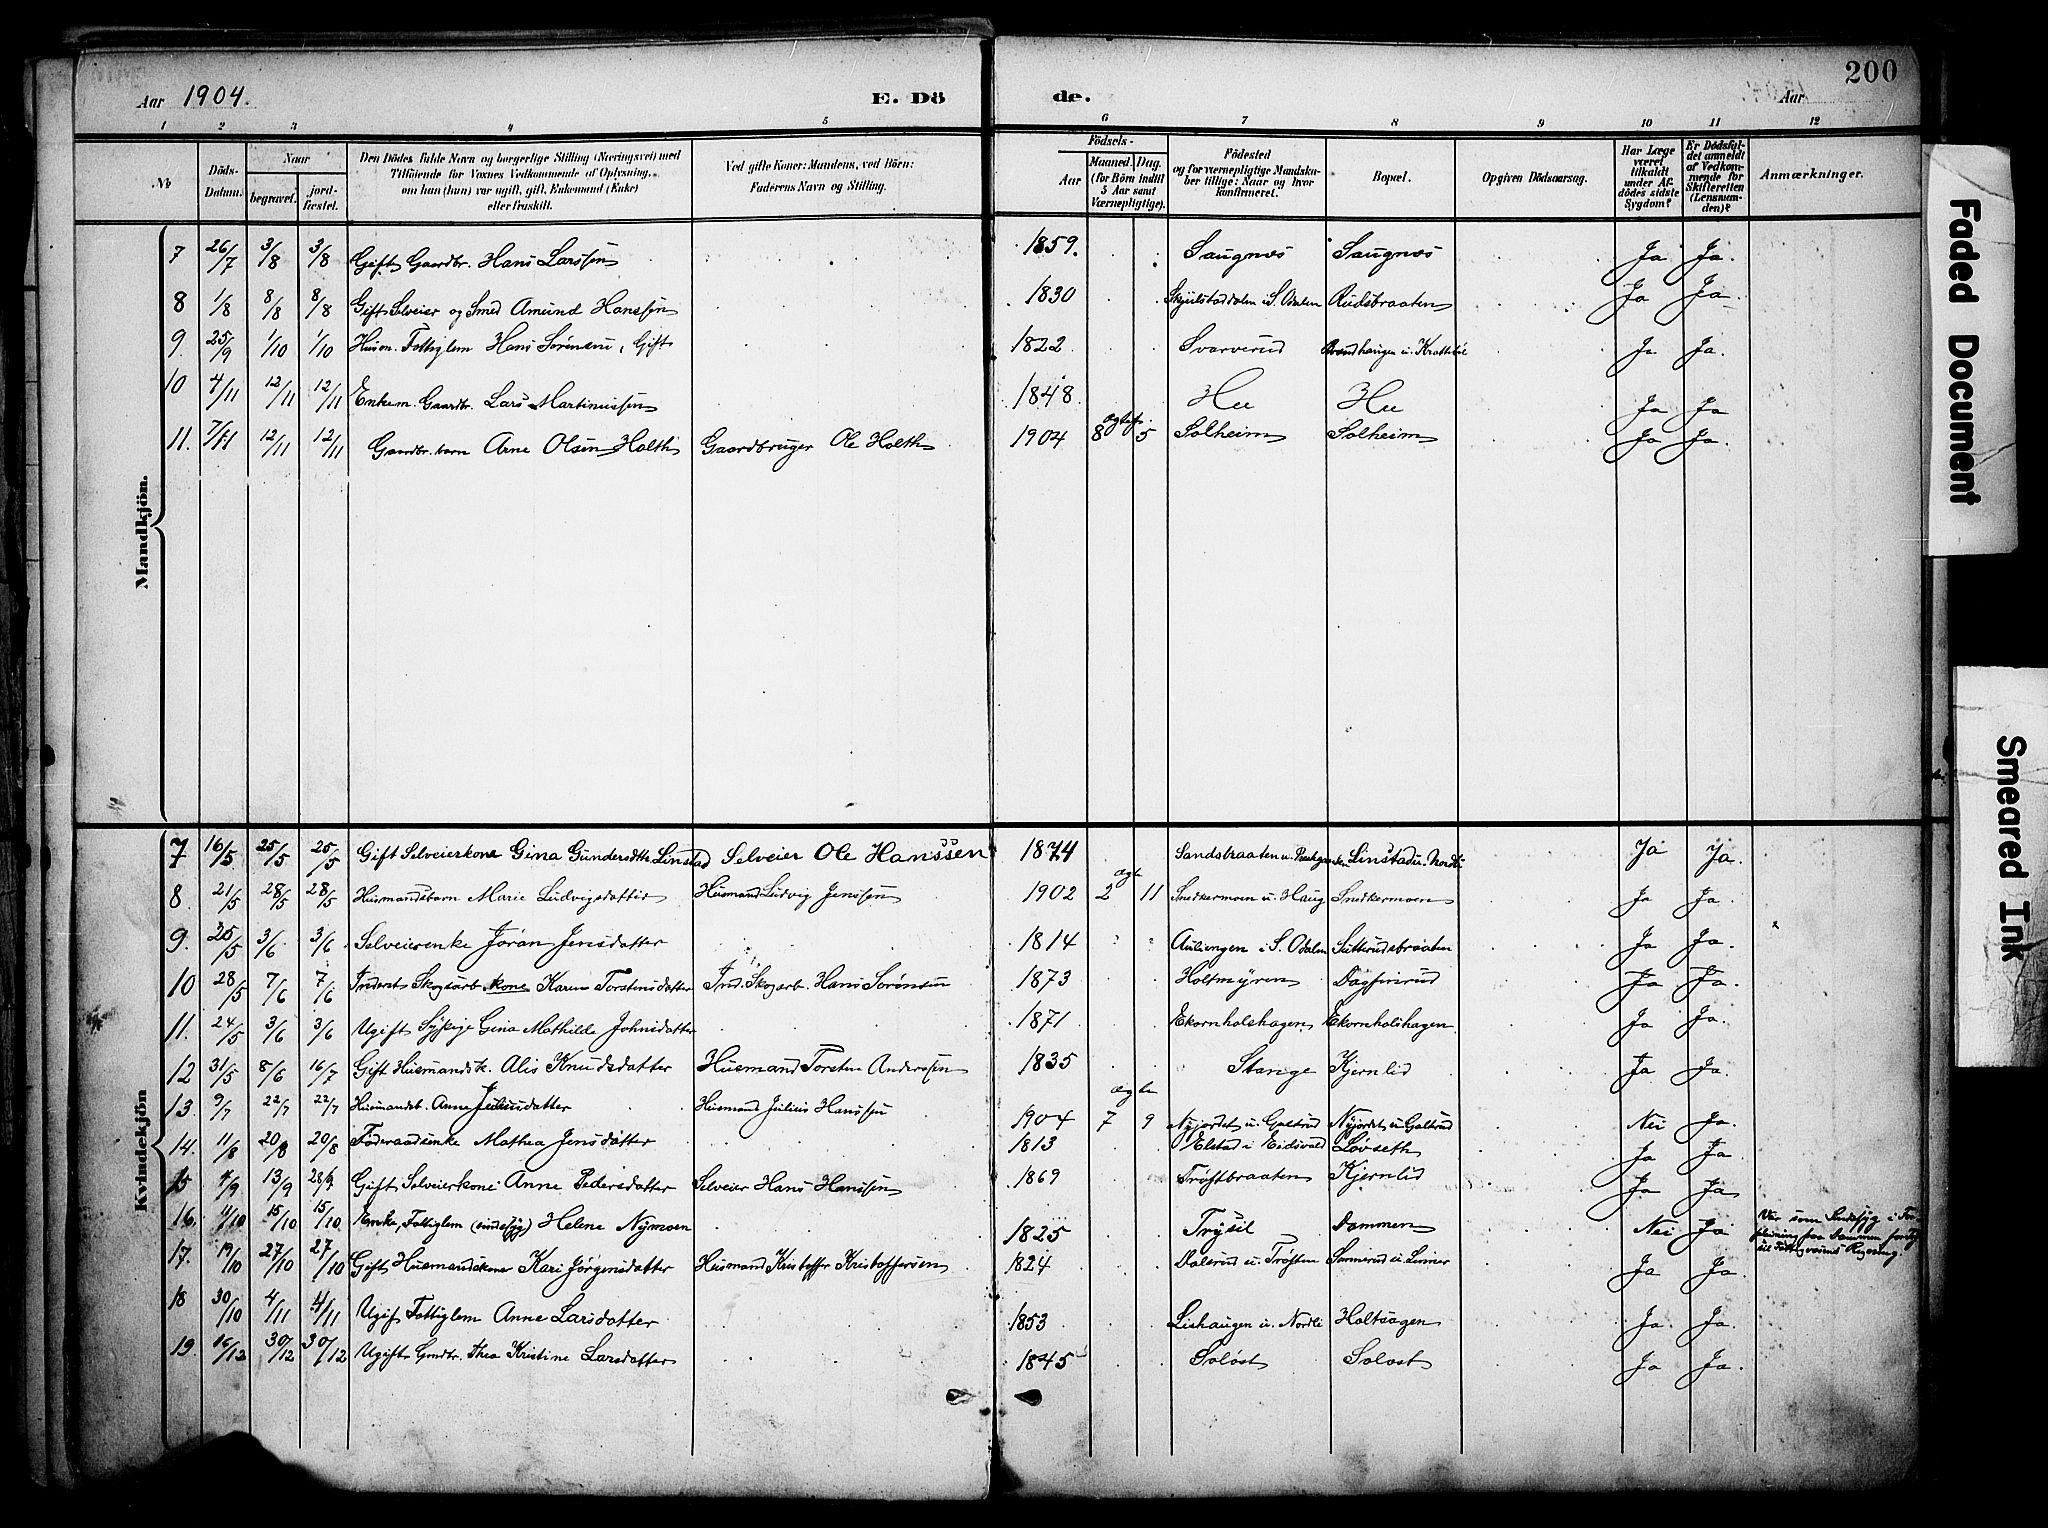 Aar 1904. E. Dö de. Aar 200
1 2 3 4 5 6 7 8 9 10 11 12
No Döds-Datum. Naar begravet. jordfæstet. Den Dödes fulde Navn og borgerlige Stilling (Næringsvei) med Tilföiende for Voxnes Vedkommende af Oplysning, om han (hun) var ugift, gift, Enkemand (Enke) eller fraskilt. Ved gifte Koner: Mandens, ved Börn: Faderens Navn og Stilling. Födsels- Aar Maaned. Dag. (for Börn indtil 5 Aar samt Værnepligtige). Födested og for værnepligtige Mandskaber tillige: Naar og hvor konfirmeret. Bopæl. Opgiven Dödsaarsag. Har Læge været tilkaldt under Afdödes sidste Sygdom? Er Dödsfaldet anmeldt af Vedkommende for Skifteretten (Lensmanden)? Anmærkninger.
Mandkjön.
7 26/7 3/8 3/8 Gift Gaardbr. Hans Larssen 1859. Saugnæs Saugnæs Ja Ja.
8 1/8 8/8 8/8 Gift Selveier og Smed Amund Hanssen 1830 i S. Odalen Rudsbraaten Ja Ja.
9. 25/9 1/10 1/10 Husm. Fattiglem Hans Sørensen, Gift 1822 Svarverud Ja Ja.
10 4/11 12/11 12/11 Enkem. Gaardbr. Lars Martinussen 1848 Hu Hu Ja Ja
11. 7/11 12/11 12/11 Gaardbr. barn Arne Olsen Holth Gaardbruger Ole Holth 1904 8 5 Solheim Solheim Ja Ja.
Kvindekjön
7 16/5 25/5 25/5 Gift Selveierkone Gina Gundersdtr. Linstad Selveier Ole Hanssen 1874 Sandsbraaten u. Linstad u. Nordli Ja Ja.
8 21/5 28/5 28/5 Husmandsbarn Marie Ludvigsdatter Husmand Ludvig Jenssen 1902 ægte 2 11 Snedkermoen u. Haug Snedkermoen Ja Ja.
9. 25/5 3/6 3/6 Selveierenke Jøran Jensdatter 1814 Auliengen i S. Odalen Sutterudsbraaten Ja Ja.
10 28/5 7/6 7/6 Inderst Skogsarb. kone Karen Torstensdatter Ind. Skogarb. Hans Sørensen 1873 Holtmyren Dagfinrud Ja Ja.
11. 24/5 3/6 3/6 Ugift Sypige Gina Mathilde Johnsdatter 1871 Ekornholshagen Ekornholshagen Ja Ja.
12 31/5 8/6 16/7 Gift Husmandsk. Alis Knudsdatter Husmand Torsten Anderssen 1835 Stange Kjernlid Ja Ja.
13. 9/7 22/7 22/7 Husmandsb. Anne Juliusdatter Husmand Julius Hanssen 1904 ægte 7 9 Nyjordet u. Galterud Nyjordet u. Galterud Nei Ja.
14. 11/8 20/8 20/8 Føderaadsenke Mathea Jensdatter 1813 Elstad i Eidsvold Løvseth Ja Ja.
15 4/9 13/9 28/9 Gift Selveierkone Anne Pedersdatter Selveier Hans Hanssen 1869 Trøftbraaten Kjernlid Ja Ja
16. 4/10 15/10 15/10 Enke, Fattiglem (sindssyg) Helene Nymoen 1825 Trysil Dammen Nei Ja Var som Sindssyg i Forpleining paa Dammen
17. 19/10 27/10 27/10 Gift Husmandskone Kari Jørgensdatter Husmand Kristoffer Kristoffersen 1824 Dalsrud u. Trøften Sannerud u. Ja Ja.
18 30/10 4/11 4/11 Ugift Fattiglem Anne Larsdatter 1853 Lishaugen u. Nordli Holtsagen Ja. Ja
19. 16/12 30/12 30/12 Ugift Gmdbr. Thea Kristine Larsdatter 1845 Soløst Soløst Ja Ja.
Faded Document
Smeared Ink